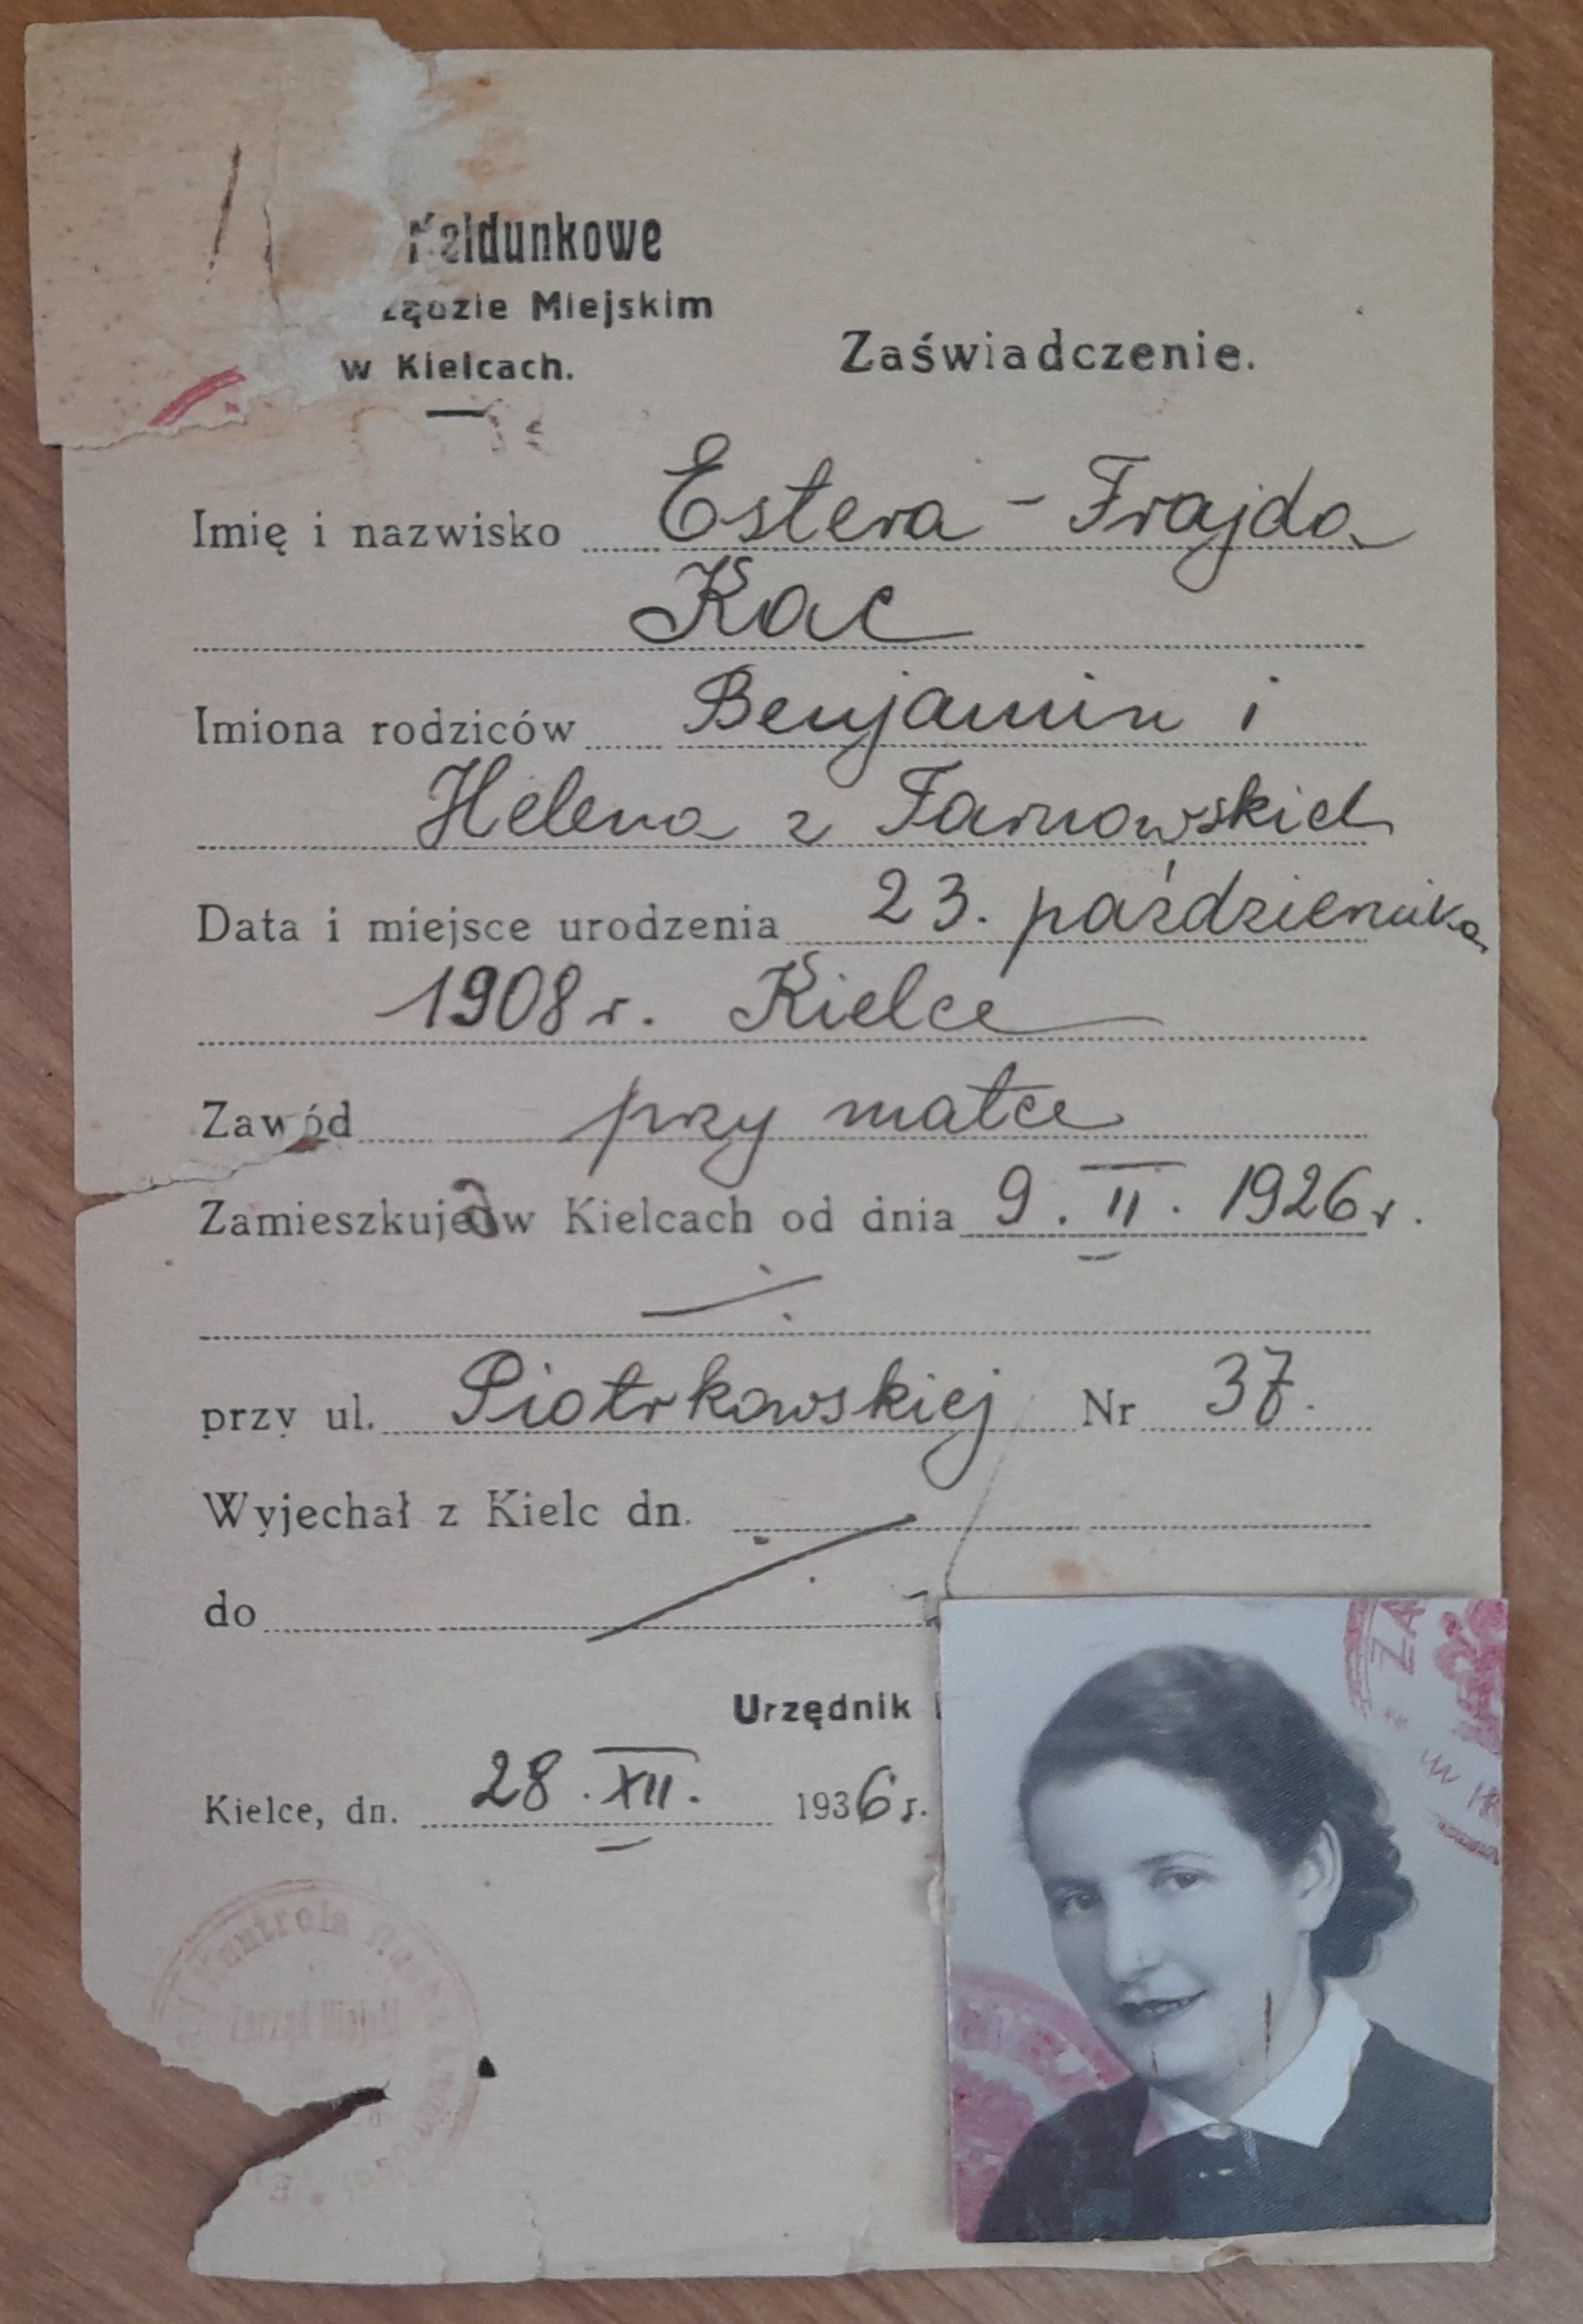 Meldunkowe
Miejskim
w Kielcach.
Zaświadczenie.
Imię i nazwisko Estera - Frajda
Kac
Imiona rodziców Benjamin i
Helena z Tarnowskich
Data i miejsce urodzenia 23. października
1908 r. Kielce
Zawód przy matce
Zamieszkuje w Kielcach od dnia 9. II. 1926 r.
przy ul. Piotrkowskiej Nr 37.
Wyjechał z Kielc dn.
do
Urzędnik
Kielce, dn. 28. XII. 1936 r.
Kontrola
Zarząd Miejski
ZA